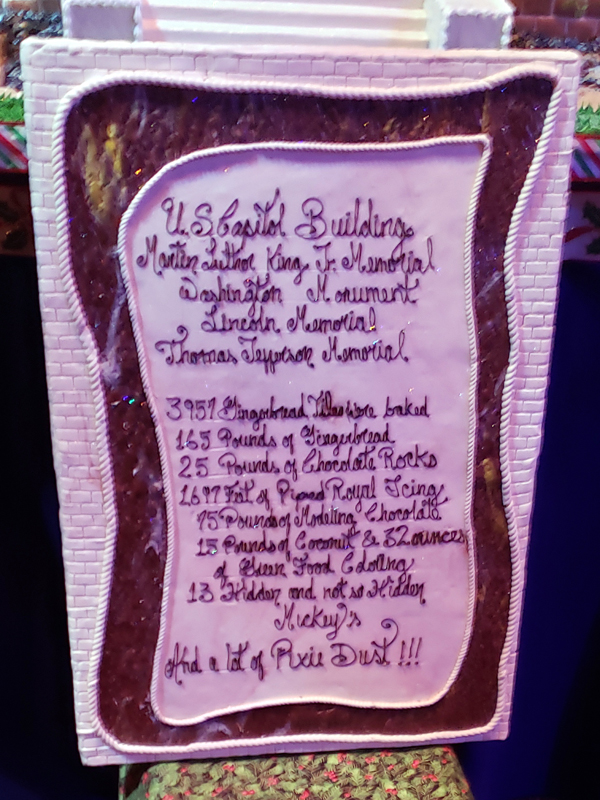 U.S Capitol Building
Martin Luther King Jr. Memorial
Washington Monument
Lincoln Memorial
Thomas Jefferson Memorial
3957 Gingerbread Tiles were baked
165 Pounds of Gingerbread
25 Pounds of Chocolate Rocks
1697 Feet of Piped Royal Icing
75 Pounds of Modeling Chocolate
15 Pounds of Coconut & 32 ounces
of Green Food Coloring
13 Hidden and not so Hidden
Mickey's
And a lot of Pixie Dust !!!